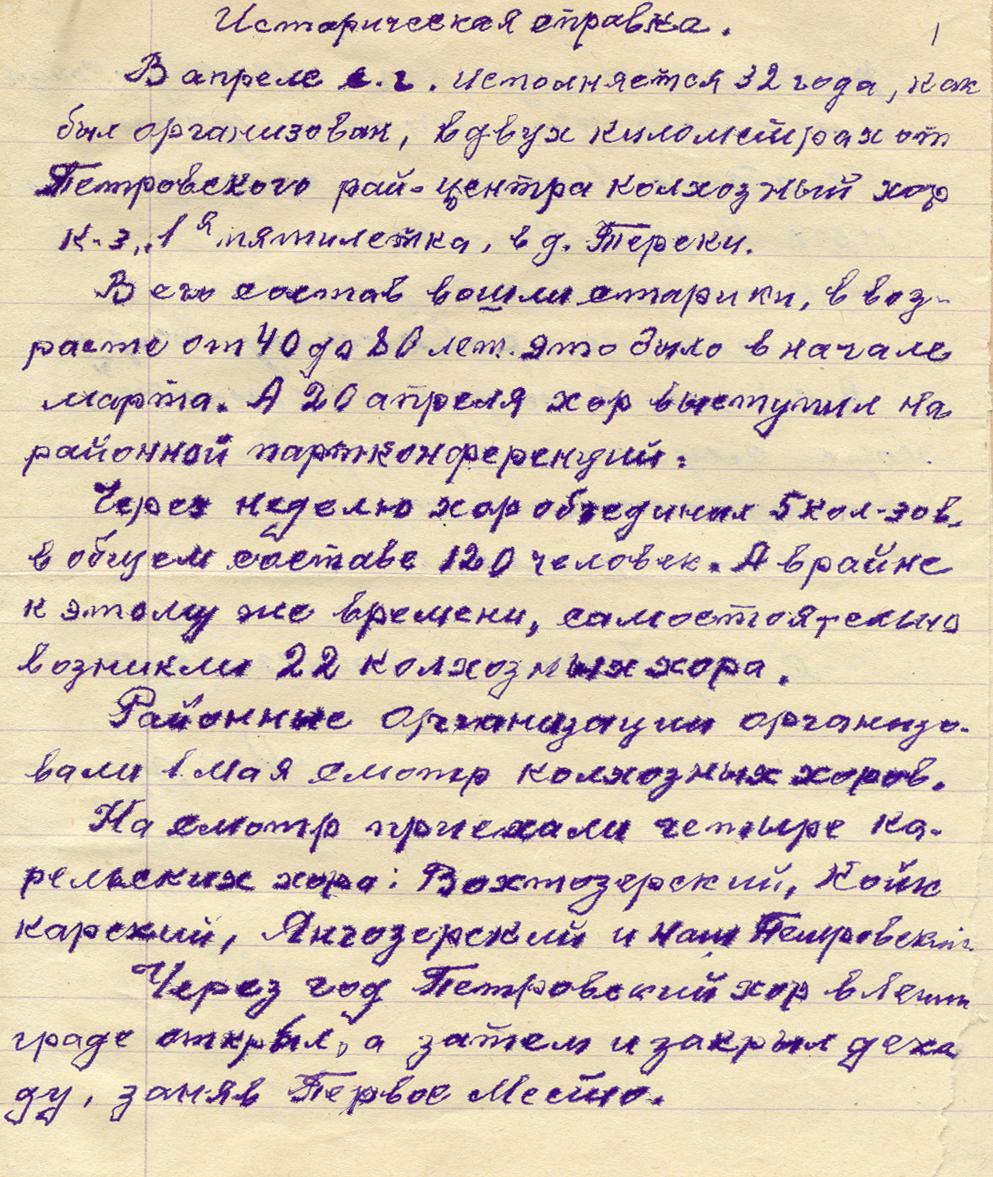 Историческая справка.
1
В апреле с.г. исполняется 32 года, как
был организован, в двух километрах от
Петровского рай-центра колхозный хор
к-з „1я пятилетка, в д. Тереки.
В его состав вошли старики, в воз-
расте от 40 до 80 лет. Это было в начале
марта. А 20 апреля хор выступил на
районной партконференций.
Через неделю хор объединил 5 кол-зов,
в общем составе 120 человек. А в райне
к этому же времени, самостоятельно
возникли 22 колхозных хора.
Районные организации организо-
вали 1 мая смотр колхозных хоров.
На смотр приехали четыре ка-
рельских хора: Вохтозерский, Койк
карский, Янгозерский и наш Петровский.
Через год Петровский хор в Ленин
граде открыл, а затем и закрыл дека
ду, заняв Первое Место.